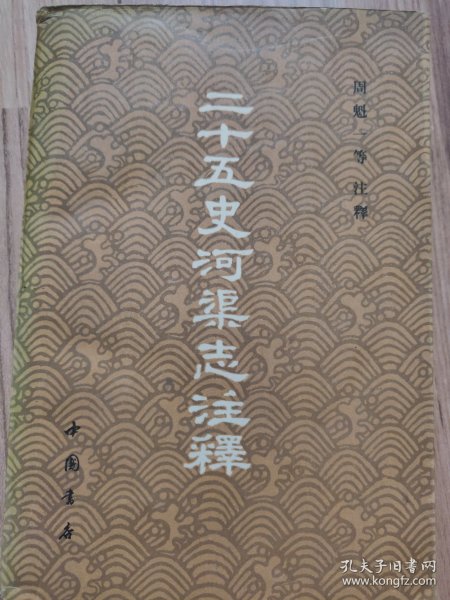 周魁一等 注釋
二十五史河渠志注釋
中國書店
孔夫子旧书网
www.kongfz.com